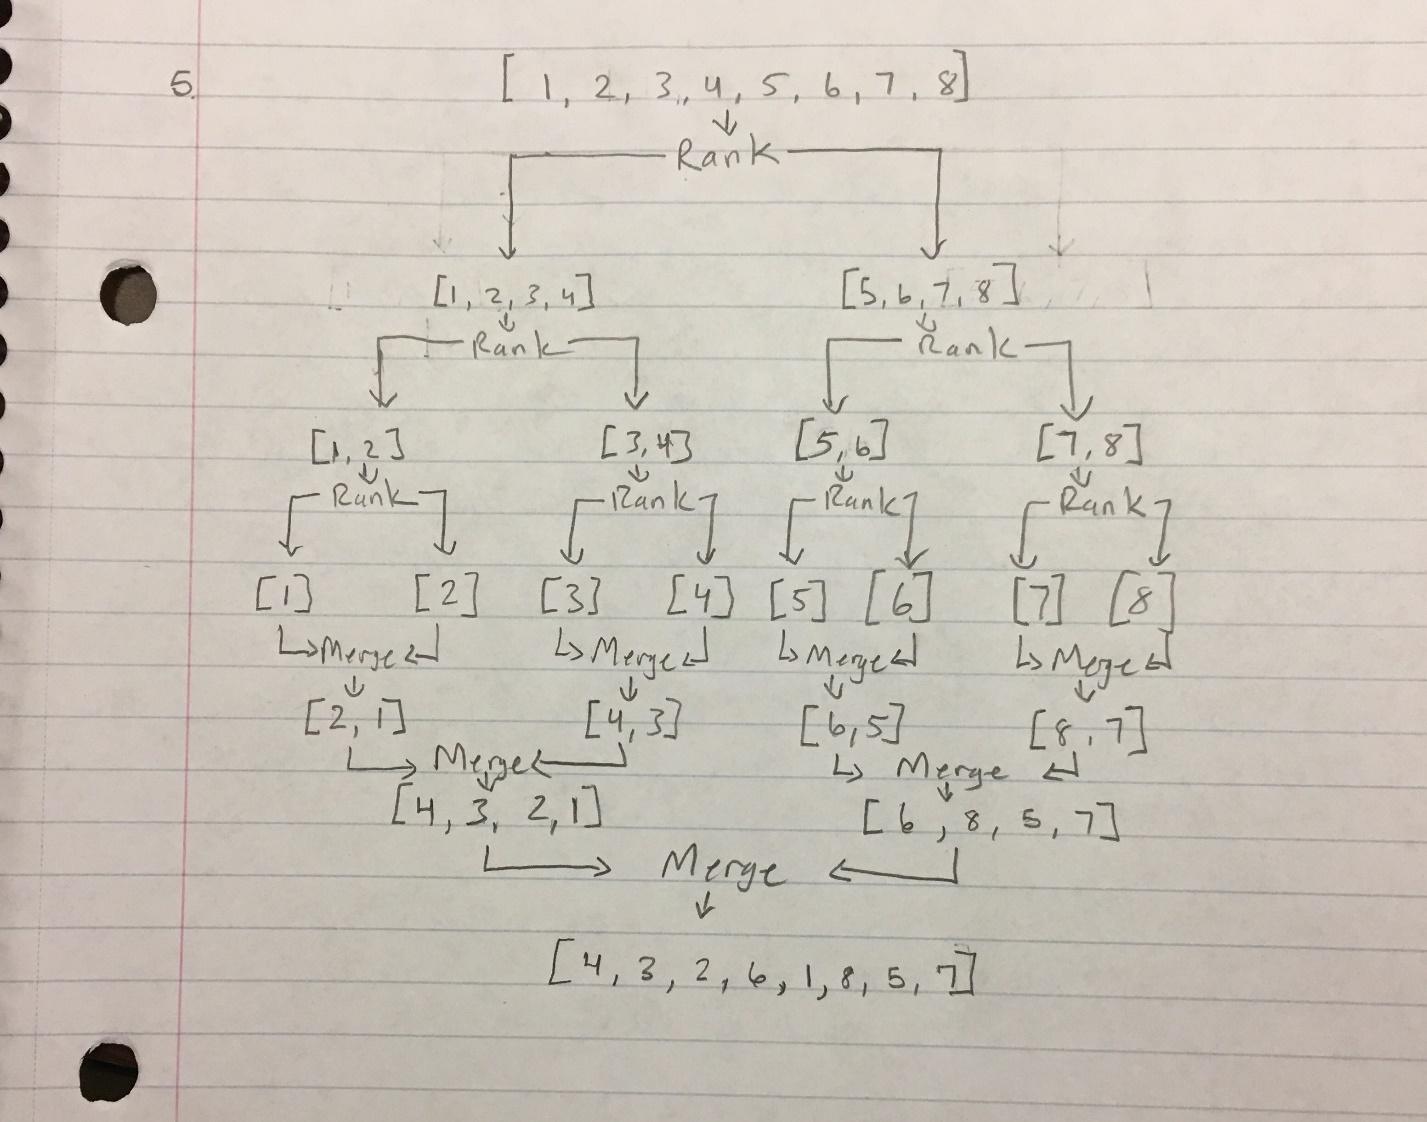 5. [1, 2, 3, 4, 5, 6, 7, 8]
Rank
[1, 2, 3, 4] [5, 6, 7, 8]
Rank Rank
[1, 2] [3, 4] [5, 6] [7, 8]
Rank Rank Rank Rank
[1] [2] [3] [4] [5] [6] [7] [8]
Merge Merge Merge Merge
[2, 1] [4, 3] [6, 5] [8, 7]
Merge Merge
[4, 3, 2, 1] [6, 8, 5, 7]
Merge
[4, 3, 2, 6, 1, 8, 5, 7]